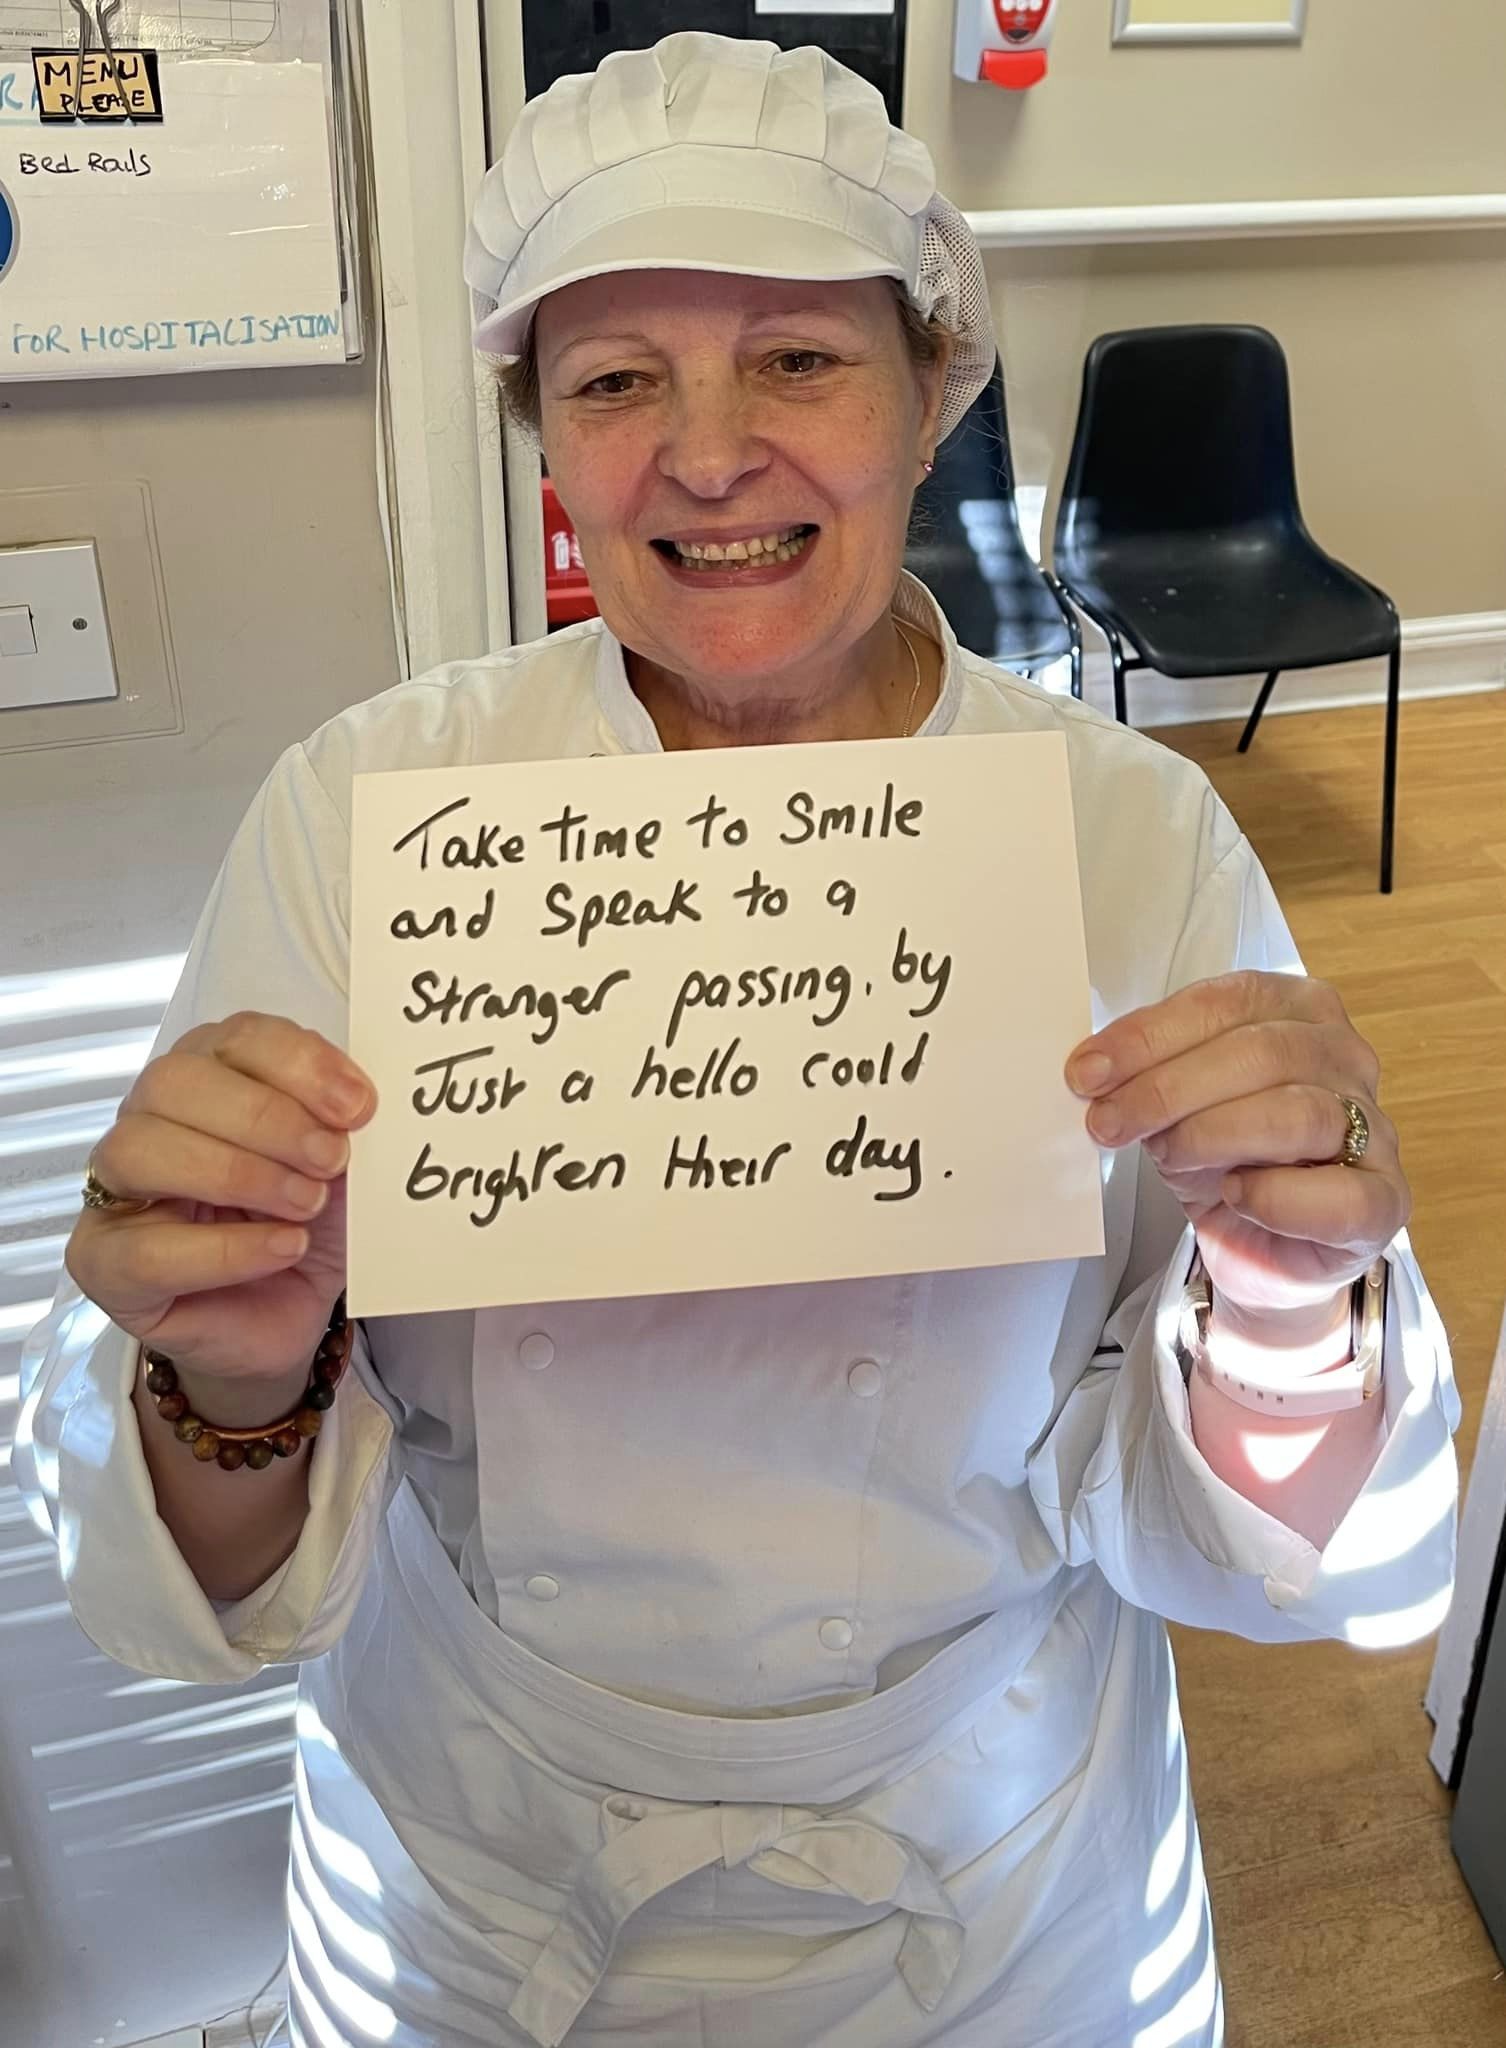 MENU
PLEASE
Bed Rails
FOR HOSPITALISATION
Take time to Smile
and Speak to a
Stranger passing, by
Just a hello could
brighten their day.